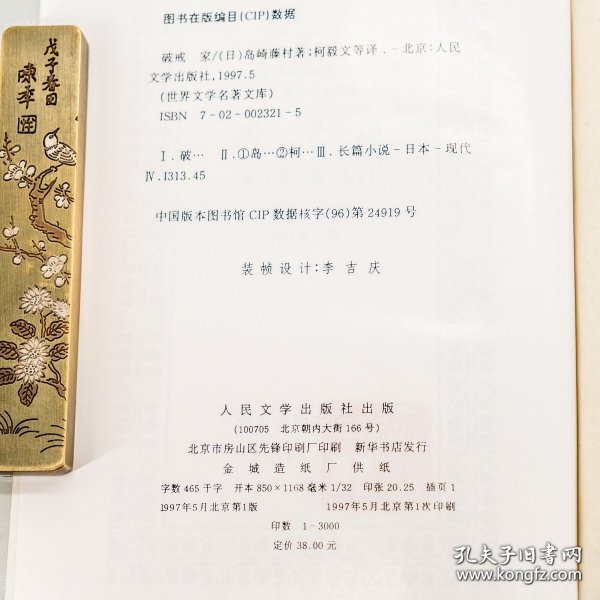 图书在版编目(CIP)数据
破戒 家/(日)岛崎藤村著;柯毅文等译.-北京:人民
文学出版社,1997.5
(世界文学名著文库)
ISBN 7-02-002321-5
Ⅰ.破… Ⅱ.①岛…②柯…Ⅲ.长篇小说-日本-现代
Ⅳ.I313.45
中国版本图书馆CIP数据核字(96)第24919号
装帧设计:李吉庆
人民文学出版社出版
(100705 北京朝内大街166号)
北京市房山区先锋印刷厂印刷 新华书店发行
金城造纸厂供纸
字数465千字 开本850×1168毫米1/32 印张20.25 插页1
1997年5月北京第1版 1997年5月北京第1次印刷
印数 1-3000
定价38.00元
戊子春日
孔夫子旧书网
www.kongfz.com